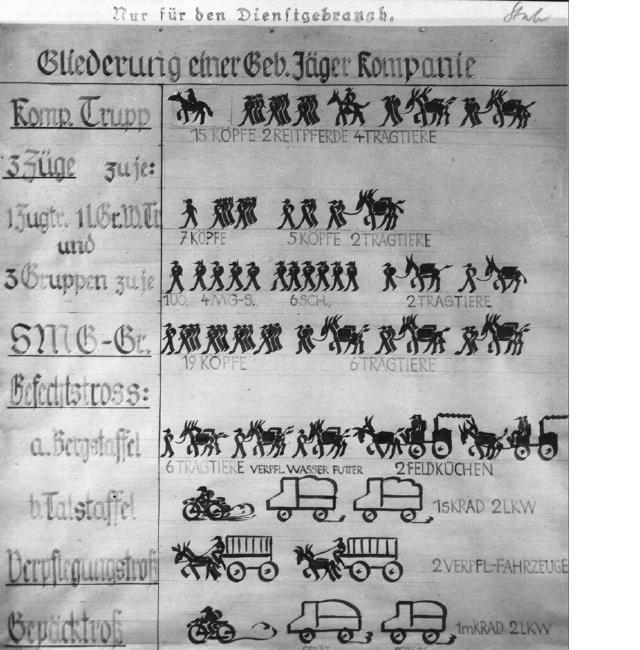 Nur für den Dienstgebrauch.
Stab
Gliederung einer Geb. Jäger Kompanie
Komp. Trupp
15 KÖPFE 2 REITPFERDE 4 TRAGTIERE
3 Züge zu je:
1 Zugtr. 1 l.Gr.W.Tr.
7 KÖPFE 5 KÖPFE 2 TRAGTIERE
und
3 Gruppen zu je
1UO, 4 MG-S. 6 SCH, 2 TRAGTIERE
SMG-Gr.
19 KÖPFE 6 TRAGTIERE
Gefechtstross:
a. Bergstaffel
6 TRAGTIERE VERPFL. WASSER FUTTER 2 FELDKÜCHEN
b. Talstaffel
1sKRAD 2LKW
Verpflegungstroß
2 VERPFL-FAHRZEUGE
Gepäcktroß
1mKRAD 2LKW